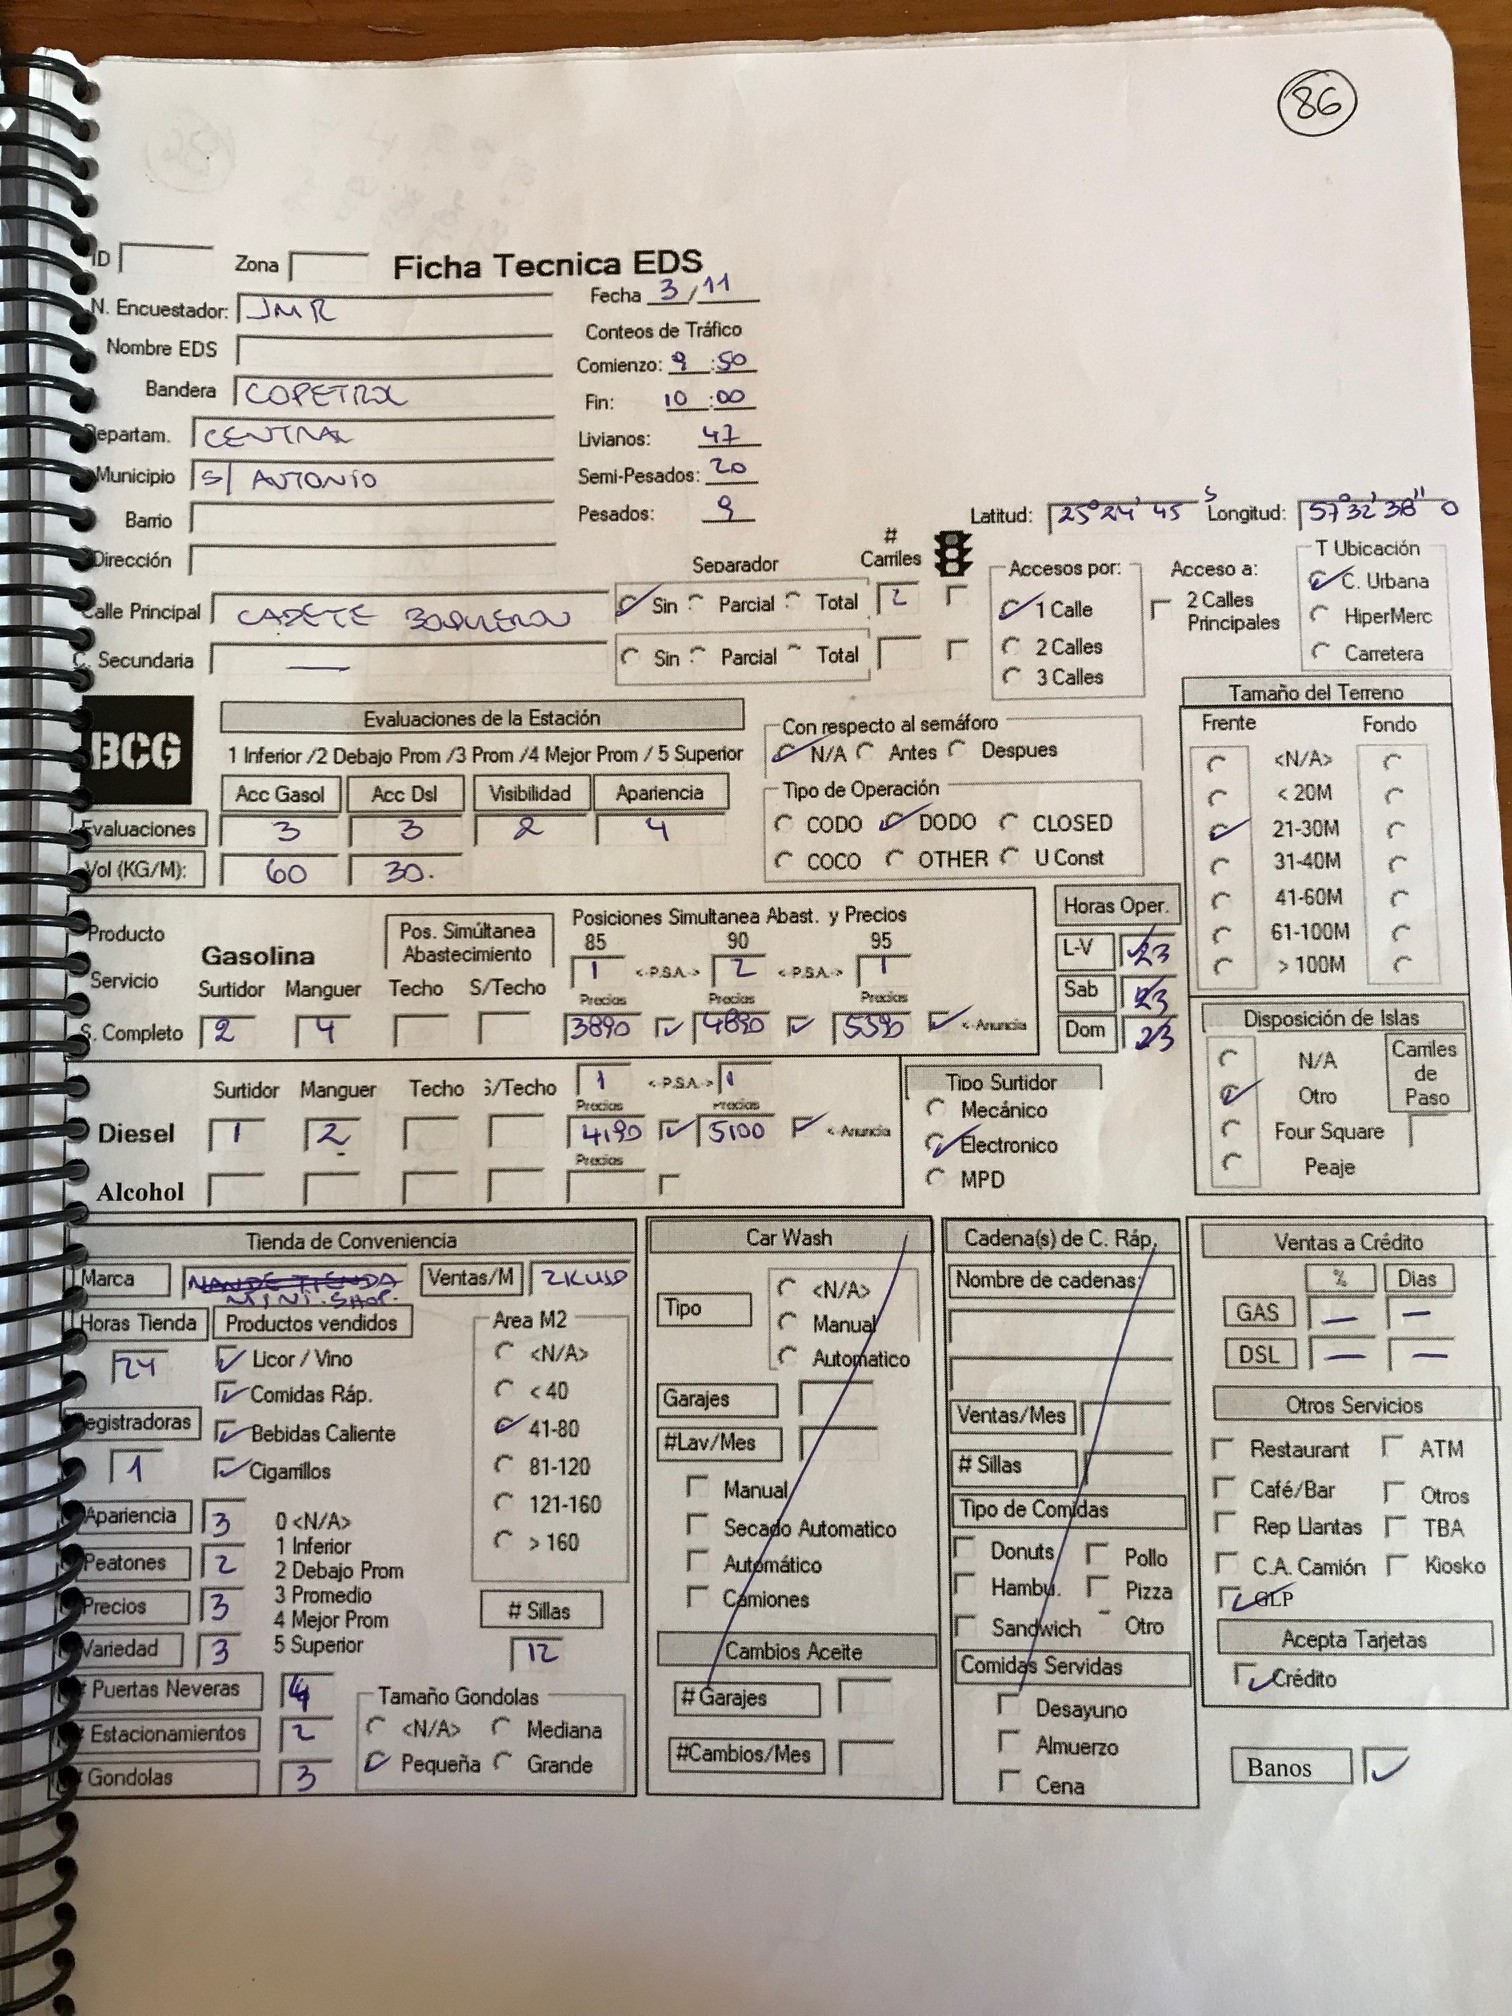 86
ID Zona Ficha Tecnica EDS
N. Encuestador: JMR Fecha 3/11
Nombre EDS Conteos de Tráfico
Bandera COPETROL Comienzo: 9:50
Fin: 10:00
Departam. CENTRAL Livianos: 47
Municipio S/ ANTONIO Semi-Pesados: 20
Barrio Pesados: 9
Latitud: 25°24' 45 S Longitud: 57°32'38" O
Dirección
Separador # Carriles
Calle Principal CADETE BOQUERON Sin Parcial Total 2
C. Secundaria — Sin Parcial Total
Accesos por:
1 Calle
2 Calles
3 Calles
Acceso a:
2 Calles
Principales
T Ubicación
C. Urbana
HiperMerc
Carretera
BCG
Evaluaciones de la Estación
1 Inferior /2 Debajo Prom /3 Prom /4 Mejor Prom / 5 Superior
Acc Gasol Acc Dsl Visibilidad Apariencia
Evaluaciones 3 3 2 4
Vol (KG/M): 60 30.
Con respecto al semáforo
N/A Antes Despues
Tipo de Operación
CODO DODO CLOSED
COCO OTHER U Const
Tamaño del Terreno
Frente Fondo
<N/A>
< 20M
21-30M
31-40M
41-60M
61-100M
> 100M
Producto
Servicio
Gasolina
Pos. Simúltánea
Abastecimiento
Posiciones Simultanea Abast. y Precios
85 90 95
1 <-P.S.A.-> 2 <-P.S.A.-> 1
Surtidor Manguer Techo S/Techo Precios Precios Precios
S. Completo 2 4 3890 4890 5390 <-Anuncia
Horas Oper.
L-V 23
Sab 23
Dom 23
Disposición de Islas
N/A
Otro
Four Square
Peaje
Carriles
de
Paso
Surtidor Manguer Techo S/Techo 1 <-P.S.A.-> 1
Precios Precios
Diesel 1 2 4190 5100 <-Anuncia
Precios
Alcohol
Tipo Surtidor
Mecánico
Electronico
MPD
Tienda de Conveniencia
Marca MINI SHOP. Ventas/M 2KUSD
Horas Tienda Productos vendidos
24 Licor / Vino
Comidas Ráp.
Registradoras Bebidas Caliente
1 Cigarrillos
Area M2
<N/A>
< 40
41-80
81-120
121-160
> 160
Apariencia 3
Peatones 2
Precios 3
Variedad 3
0 <N/A>
1 Inferior
2 Debajo Prom
3 Promedio
4 Mejor Prom
5 Superior
# Sillas
12
# Puertas Neveras 4
# Estacionamientos 2
# Gondolas 3
Tamaño Gondolas
<N/A> Mediana
Pequeña Grande
Car Wash
Tipo
<N/A>
Manual
Automatico
Garajes
#Lav/Mes
Manual
Secado Automatico
Automático
Camiones
Cambios Aceite
# Garajes
#Cambios/Mes
Cadena(s) de C. Ráp.
Nombre de cadenas:
Ventas/Mes
# Sillas
Tipo de Comidas
Donuts Pollo
Hambu. Pizza
Sandwich Otro
Comidas Servidas
Desayuno
Almuerzo
Cena
Ventas a Crédito
% Dias
GAS — —
DSL — —
Otros Servicios
Restaurant ATM
Café/Bar Otros
Rep Llantas TBA
C.A. Camión Kiosko
GLP
Acepta Tarjetas
Crédito
Banos